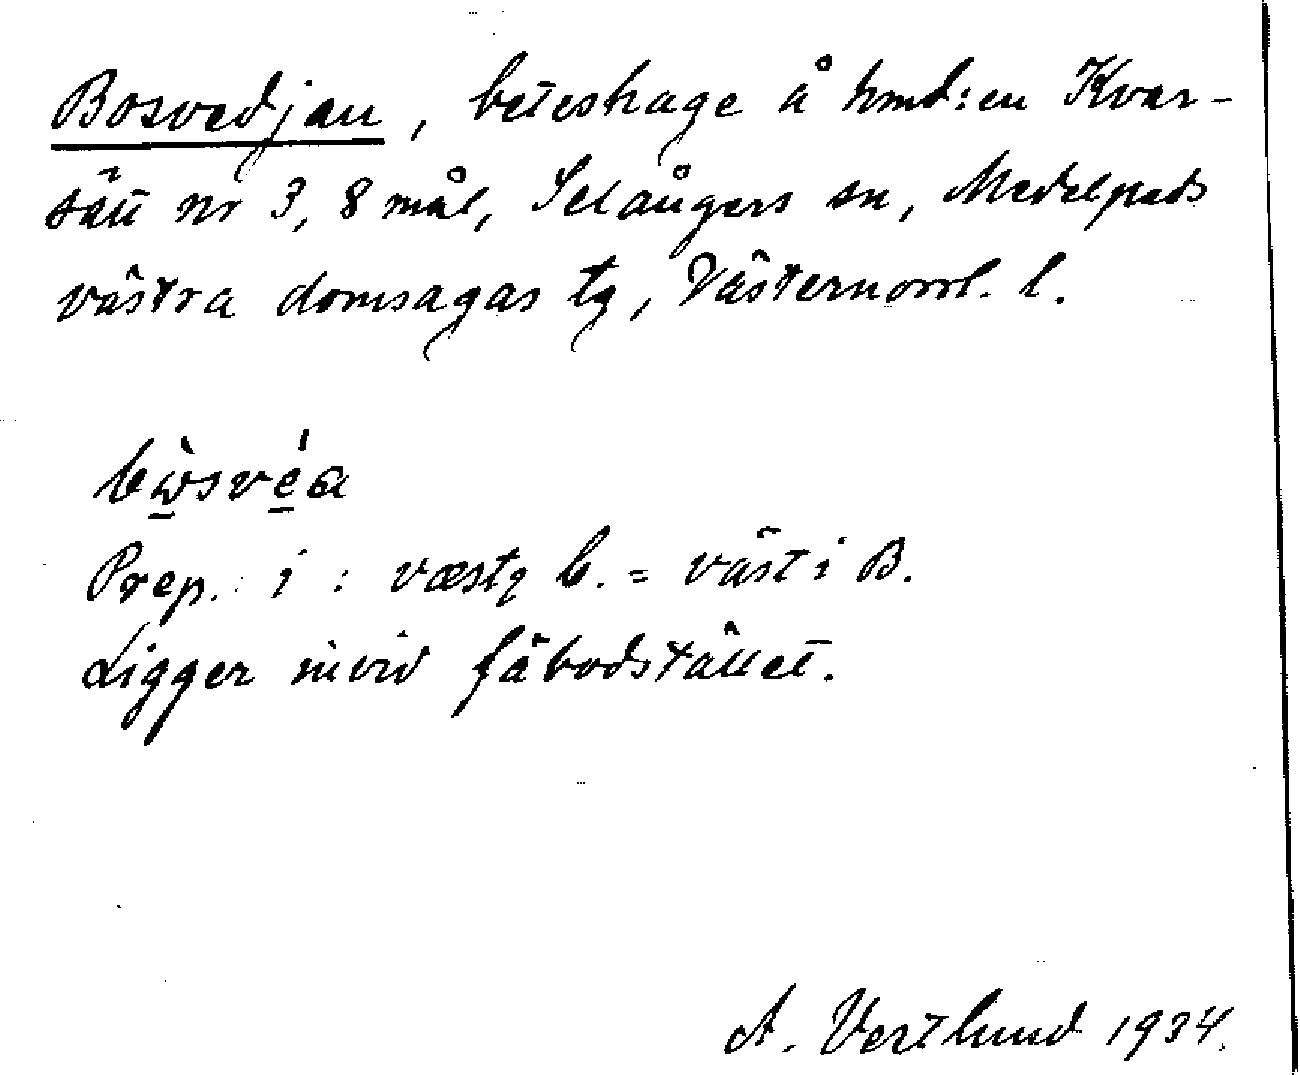 Bosvedjan, beteshage å hmd:en Kvar-
sätt nr 3, 8 mål, Selångers sn, Medelpads
västra domsagas tg, Västernorrl. l.
bɯ̀svéa
Prep. i : væstɩ b. = väst i B.
Ligger invid fäbodstället.
A. Vestlund 1934.